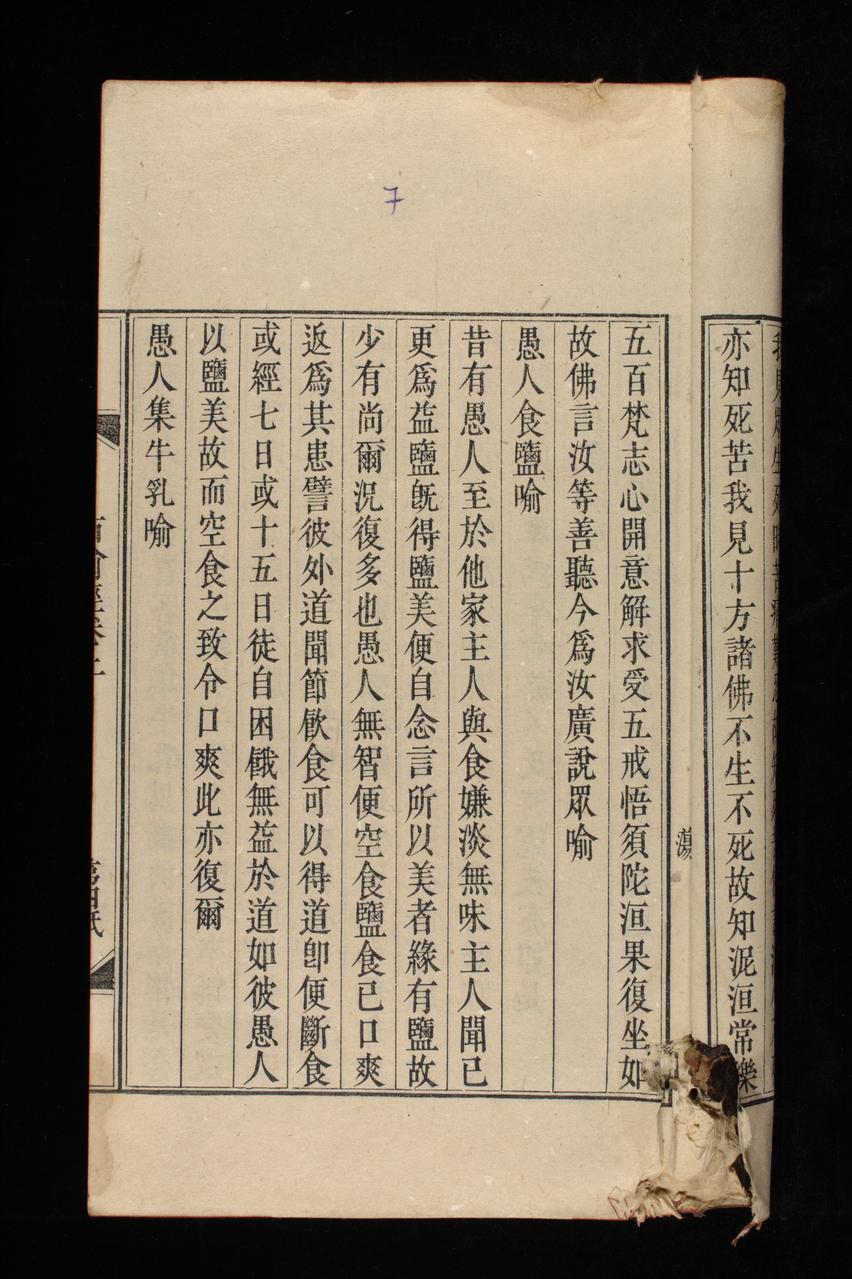 7
亦知死苦我見十方諸佛不生不死故知泥洹常樂
蕩
五百梵志心開意解求受五戒悟須陀洹果復坐如
故佛言汝等善聽今爲汝廣說眾喻
愚人食鹽喻
昔有愚人至於他家主人與食嫌淡無味主人聞已
更爲益鹽旣得鹽美便自念言所以美者緣有鹽故
少有尚爾況復多也愚人無智便空食鹽食已口爽
返爲其患譬彼外道聞節飮食可以得道卽便斷食
或經七日或十五日徒自困餓無益於道如彼愚人
以鹽美故而空食之致令口爽此亦復爾
愚人集牛乳喻